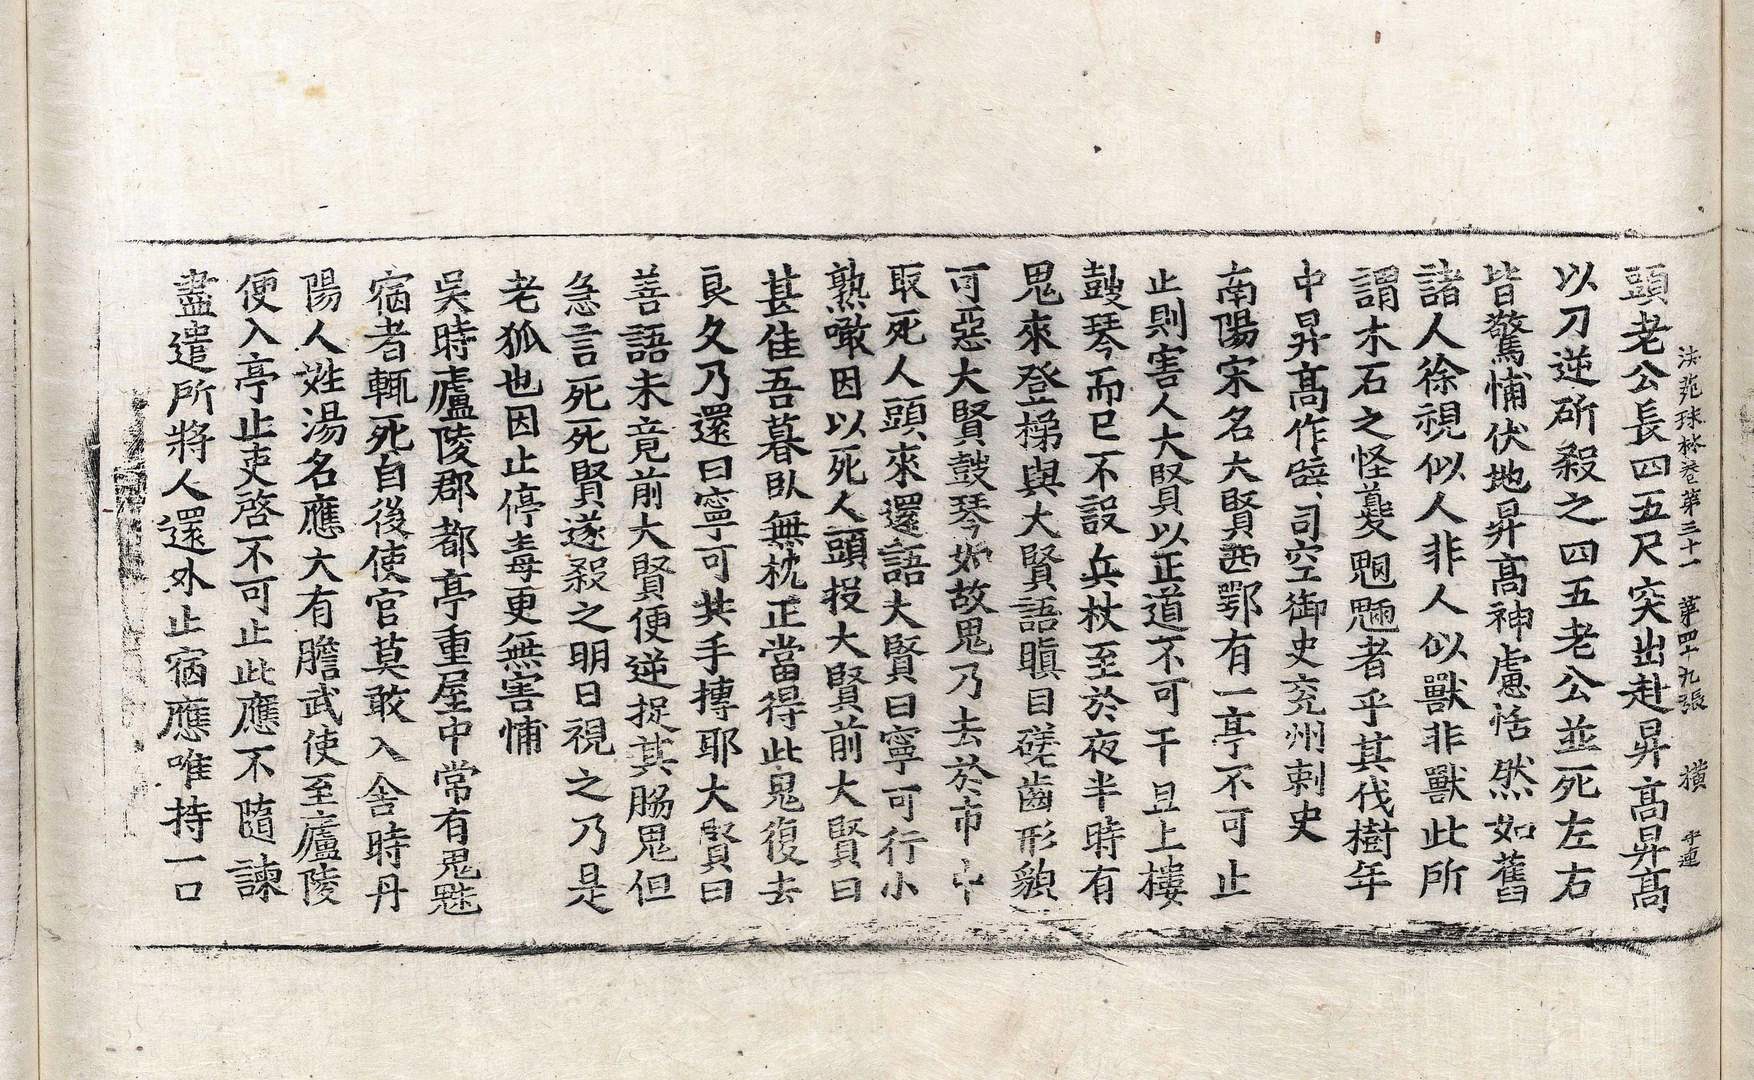 法苑珠林卷第三十一　第四十九張　橫
頭老公長四五尺突出赴昇高昇高
以刀逆斫殺之四五老公並死左右
皆驚怖伏地昇高神慮恬然如舊
諸人徐視似人非人似獸非獸此所
謂木石之怪夔魍魎者乎其伐樹年
中昇高作辟司空御史兗州刺史
南陽宋名大賢西鄂有一亭不可止
止則害人大賢以正道不可干且上樓
鼓琴而已不設兵杖至於夜半時有
鬼來登梯與大賢語瞋目磋齒形貌
可惡大賢鼓琴如故鬼乃去於市中
取死人頭來還語大賢曰寧可行小
熟噉因以死人頭投大賢前大賢曰
甚佳吾暮臥無枕正當得此鬼復去
良久乃還曰寧可共手摶耶大賢曰
善語未竟前大賢便逆捉其腸鬼但
急言死死賢遂殺之明日視之乃是
老狐也因止停毒更無害怖
吳時廬陵郡都亭重屋中常有鬼魅
宿者輒死自後使官莫敢入舍時丹
陽人姓湯名應大有膽武使至廬陵
便入亭止吏啓不可止此應不隨諫
盡遣所將人還外止宿應唯持一口